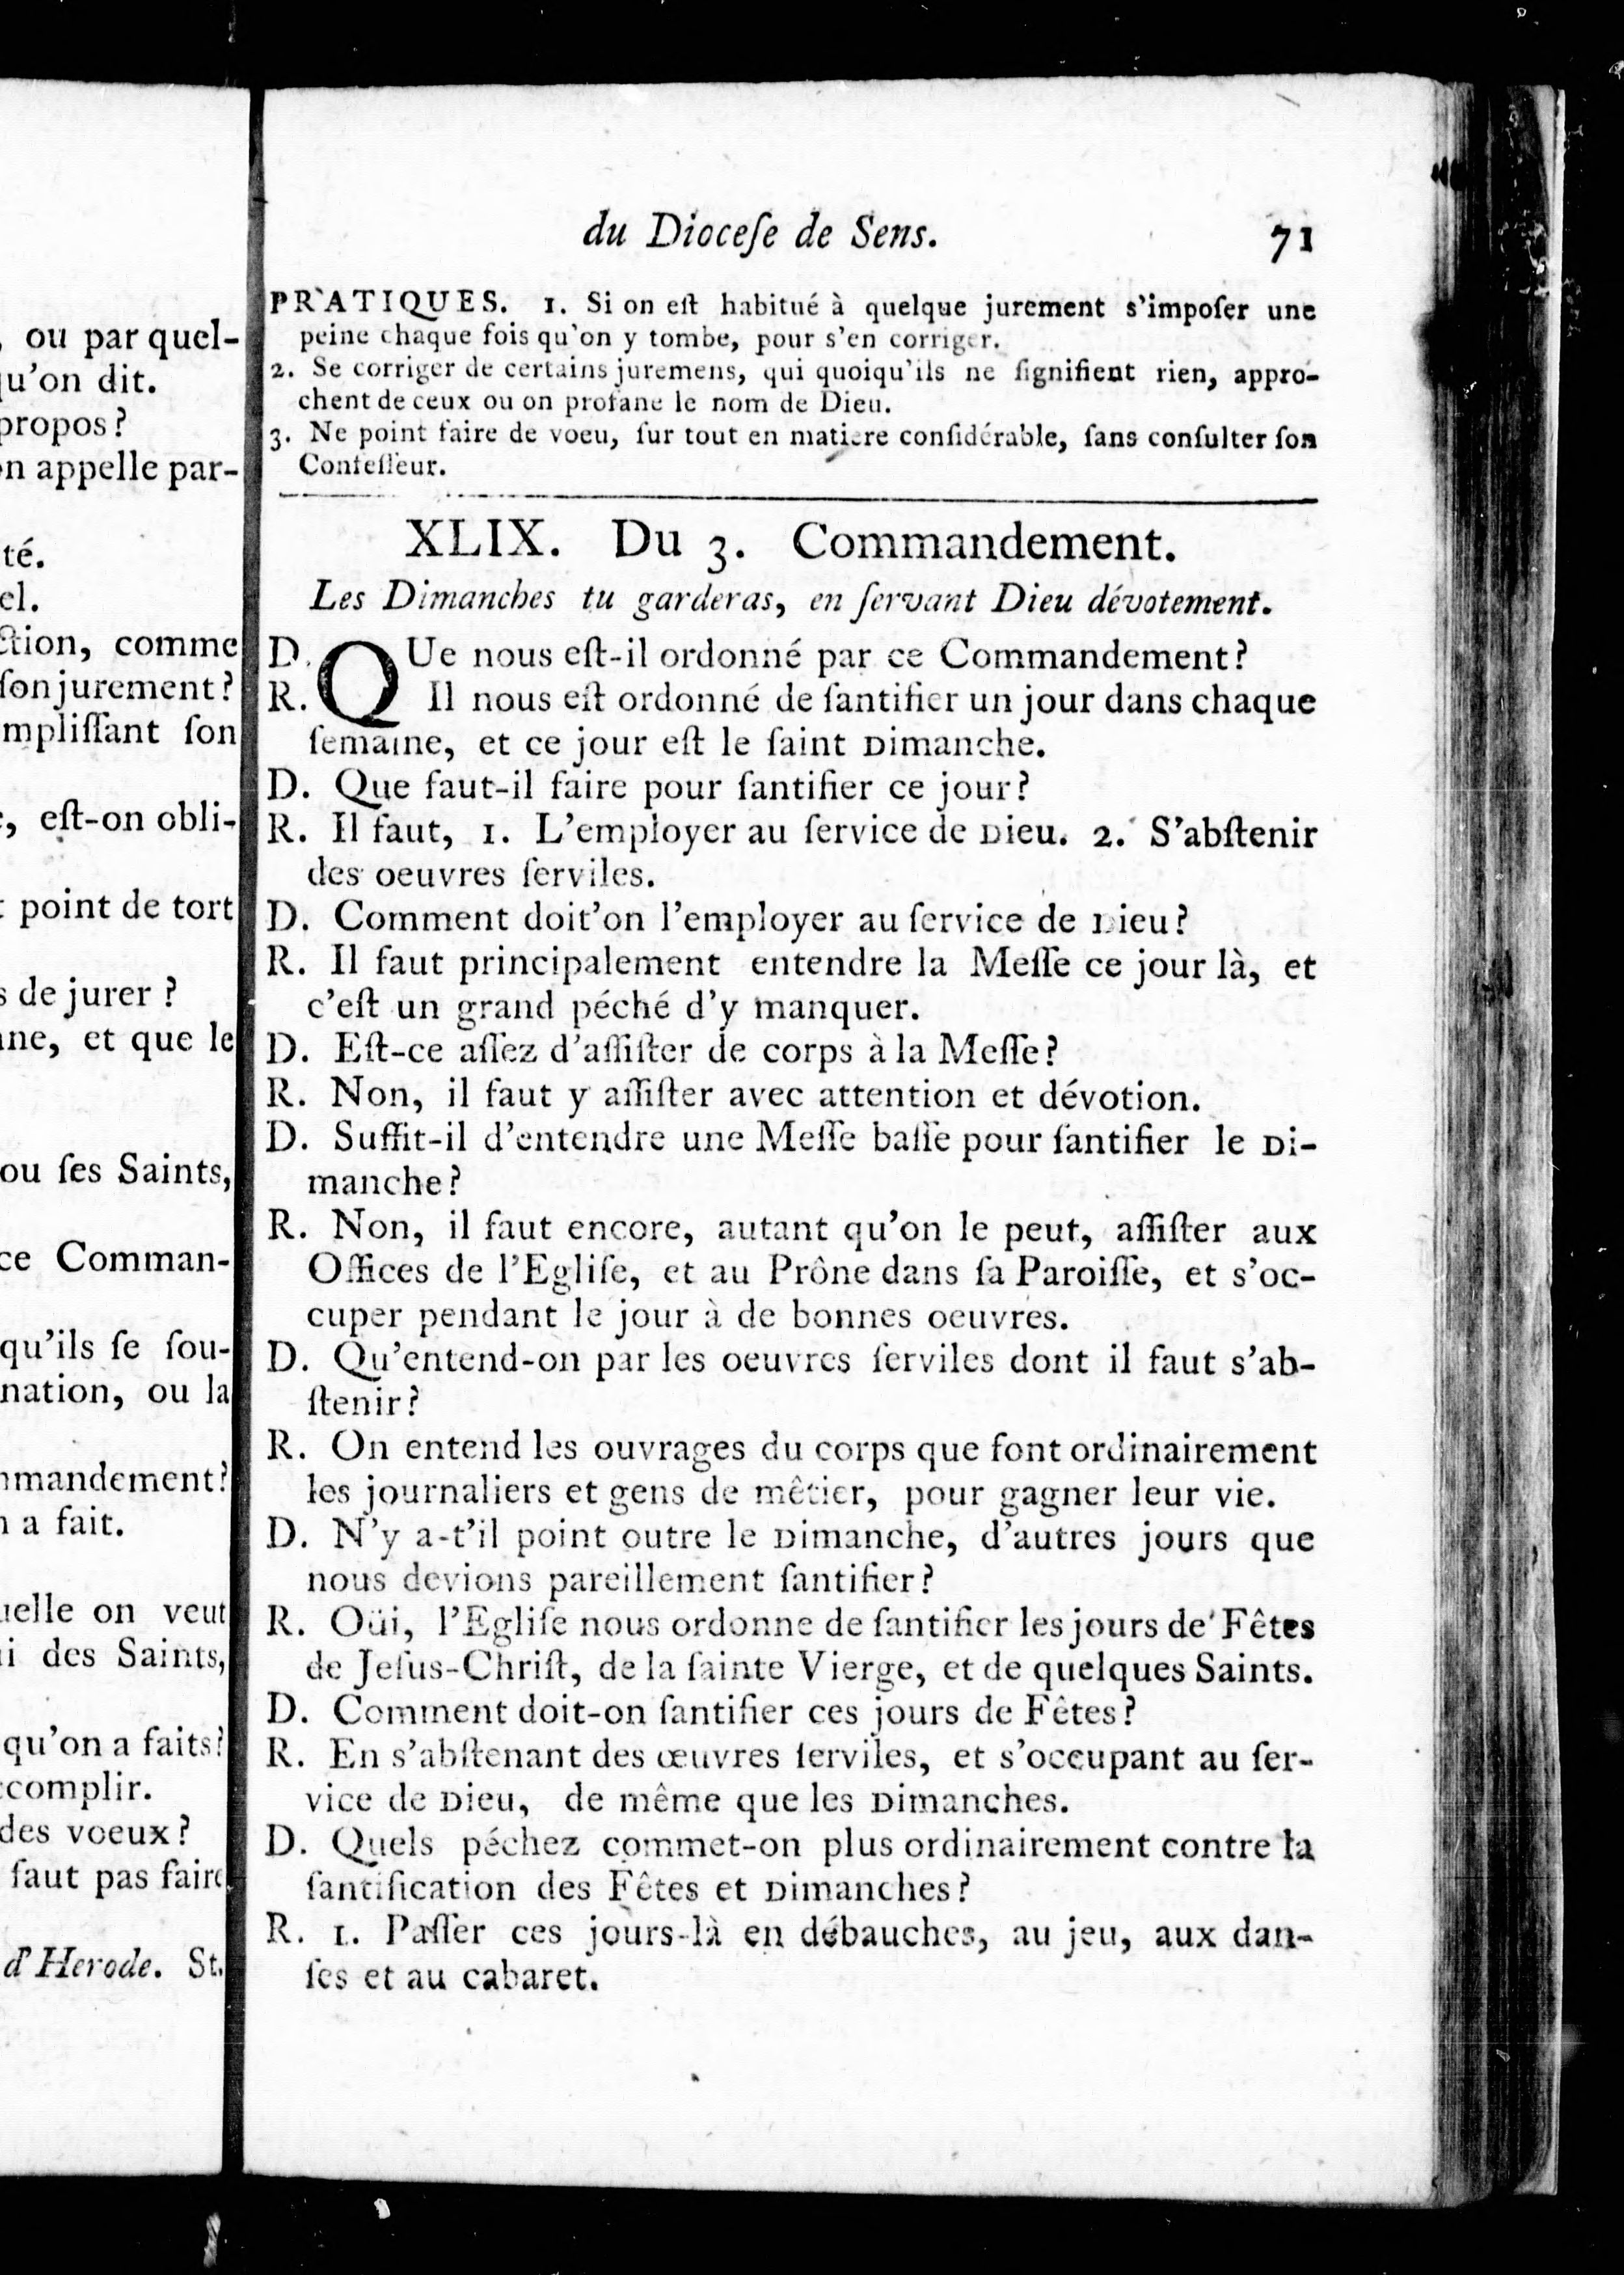 , ou par quel-
qu'on dit.
propos?
on appelle par-
té.
el.
ction, comme
ſon jurement?
mpliſſant ſon
, eſt-on obli-
point de tort
s de jurer ?
nne, et que le
ou ſes Saints,
ce Comman-
qu'ils ſe ſou-
nation, ou la
mmandement?
n a fait.
uelle on veut
i des Saints,
qu'on a faits?
ccomplir.
des voeux?
faut pas faire
d'Herode. St.
du Dioceſe de Sens. 71
PRATIQUES. 1. Si on eſt habitué à quelque jurement s'impoſer une
peine chaque fois qu'on y tombe, pour s'en corriger.
2. Se corriger de certains juremens, qui quoiqu'ils ne ſignifient rien, appro-
chent de ceux ou on profane le nom de Dieu.
3. Ne point faire de voeu, ſur tout en matiere conſidérable, ſans conſulter ſon
Confeſſeur.
XLIX. Du 3. Commandement.
Les Dimanches tu garderas, en ſervant Dieu dévotement.
D. QUe nous eſt-il ordonné par ce Commandement?
R. Il nous eſt ordonné de ſantifier un jour dans chaque
ſemaine, et ce jour eſt le ſaint Dimanche.
D. Que faut-il faire pour ſantifier ce jour?
R. Il faut, 1. L'employer au ſervice de Dieu. 2. S'abſtenir
des oeuvres ſerviles.
D. Comment doit'on l'employer au ſervice de Dieu?
R. Il faut principalement entendre la Meſſe ce jour là, et
c'eſt un grand péché d'y manquer.
D. Eſt-ce aſſez d'aſſiſter de corps à la Meſſe?
R. Non, il faut y aſſiſter avec attention et dévotion.
D. Suffit-il d'entendre une Meſſe baſſe pour ſantifier le Di-
manche?
R. Non, il faut encore, autant qu'on le peut, aſſiſter aux
Offices de l'Egliſe, et au Prône dans ſa Paroiſſe, et s'oc-
cuper pendant le jour à de bonnes oeuvres.
D. Qu'entend-on par les oeuvres ſerviles dont il faut s'ab-
ſtenir?
R. On entend les ouvrages du corps que font ordinairement
les journaliers et gens de mêtier, pour gagner leur vie.
D. N'y a-t'il point outre le Dimanche, d'autres jours que
nous devions pareillement ſantifier?
R. Oüi, l'Egliſe nous ordonne de ſantifier les jours de Fêtes
de Jeſus-Chriſt, de la ſainte Vierge, et de quelques Saints.
D. Comment doit-on ſantifier ces jours de Fêtes?
R. En s'abſtenant des œuvres ſerviles, et s'occupant au ſer-
vice de Dieu, de même que les Dimanches.
D. Quels péchez commet-on plus ordinairement contre la
ſantification des Fêtes et Dimanches?
R. 1. Paſſer ces jours-là en débauches, au jeu, aux dan-
ſes et au cabaret.